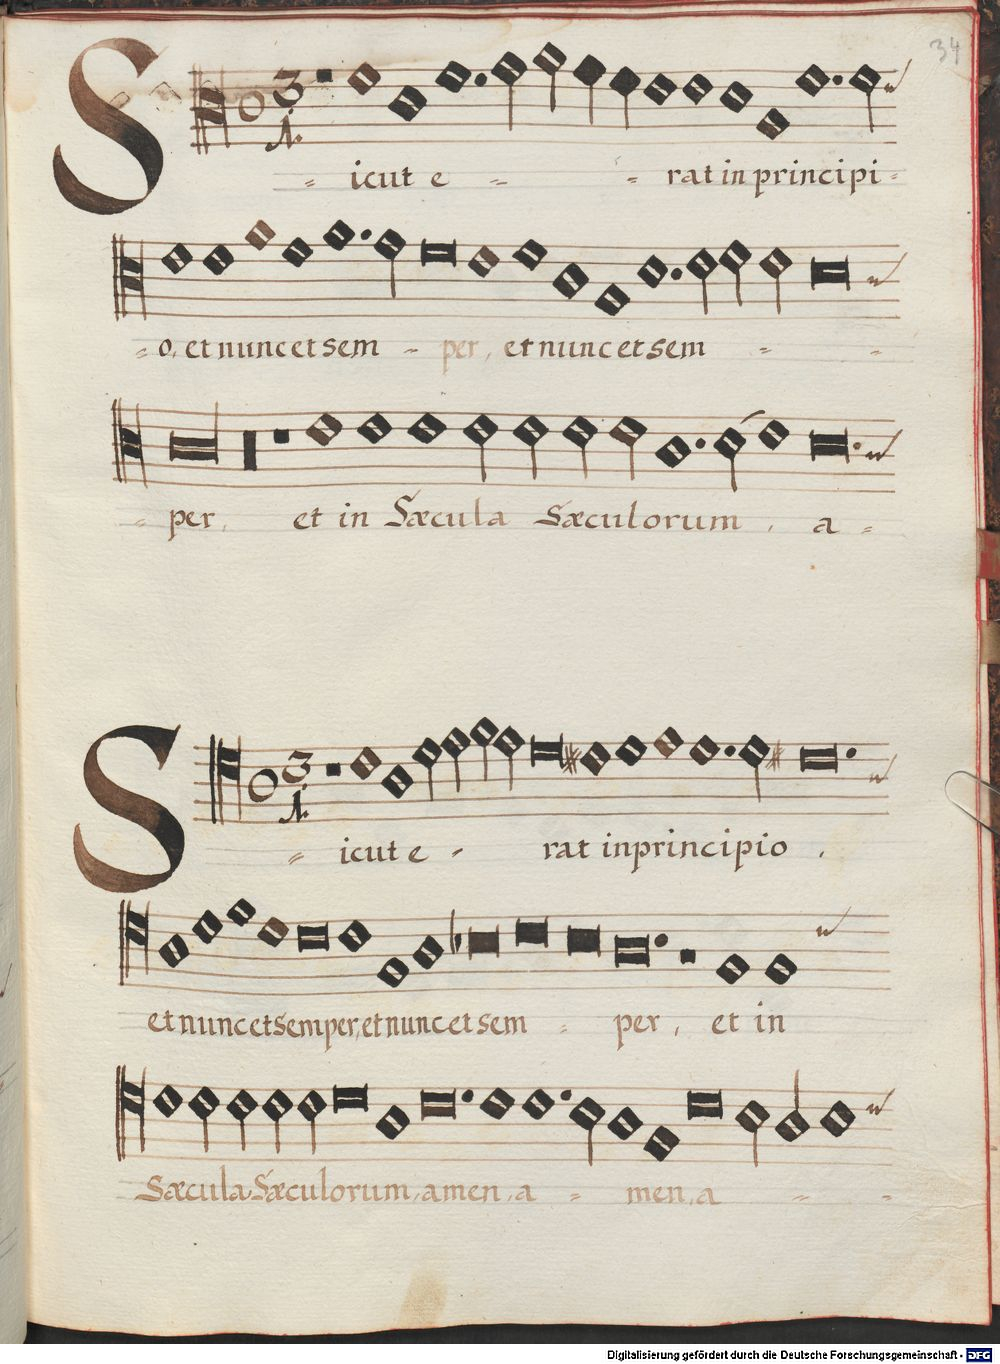 34
Sicut e - - rat in principi-
-o, et nunc et sem - per, et nunc et sem - -
- per, et in Sæcula Sæculorum, a -
Sicut e - rat in principio.
et nunc et semper, et nunc et sem - per, et in
Sæcula Sæculorum, amen, a - men, a - -
Digitalisierung gefördert durch die Deutsche Forschungsgemeinschaft - DFG